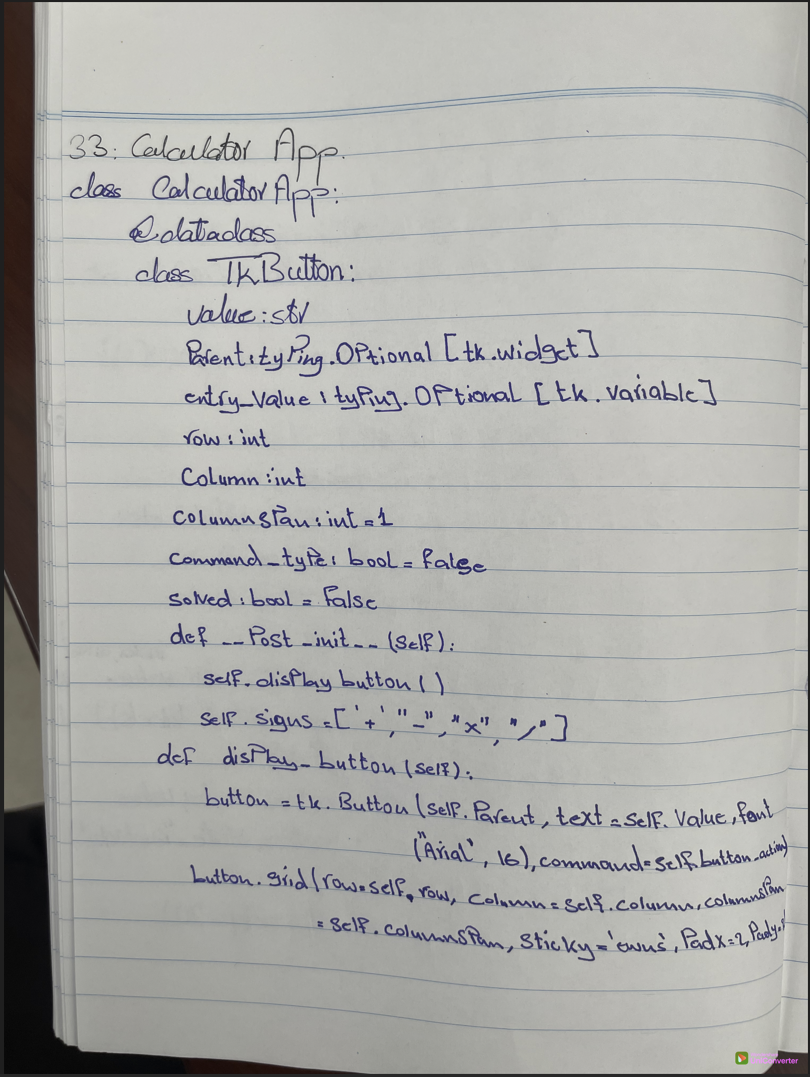 33: Calculator App.
class CalculatorApp:
@dataclass
class TkButton:
value:str
Parent:tyPing.OPtional [tk.widget]
entry_Value : tyPing.OPtional [tk.variable]
row : int
Column :int
columnsPan : int = 1
command_tyPe: bool = False
solved : bool = False
def __Post_init__(self):
self.disPlay button ( )
self. signs = ['+', "-", "x", "/"]
def disPlay_button (self):
button = tk. Button (self.Parent, text = self. Value, font
("Arial', 16), command=self.button_action)
button. grid (row=self.row, Column = self.column, columnsPan
= self.columnsPan, Sticky = 'ewns', Padx=2, Pady=
converter